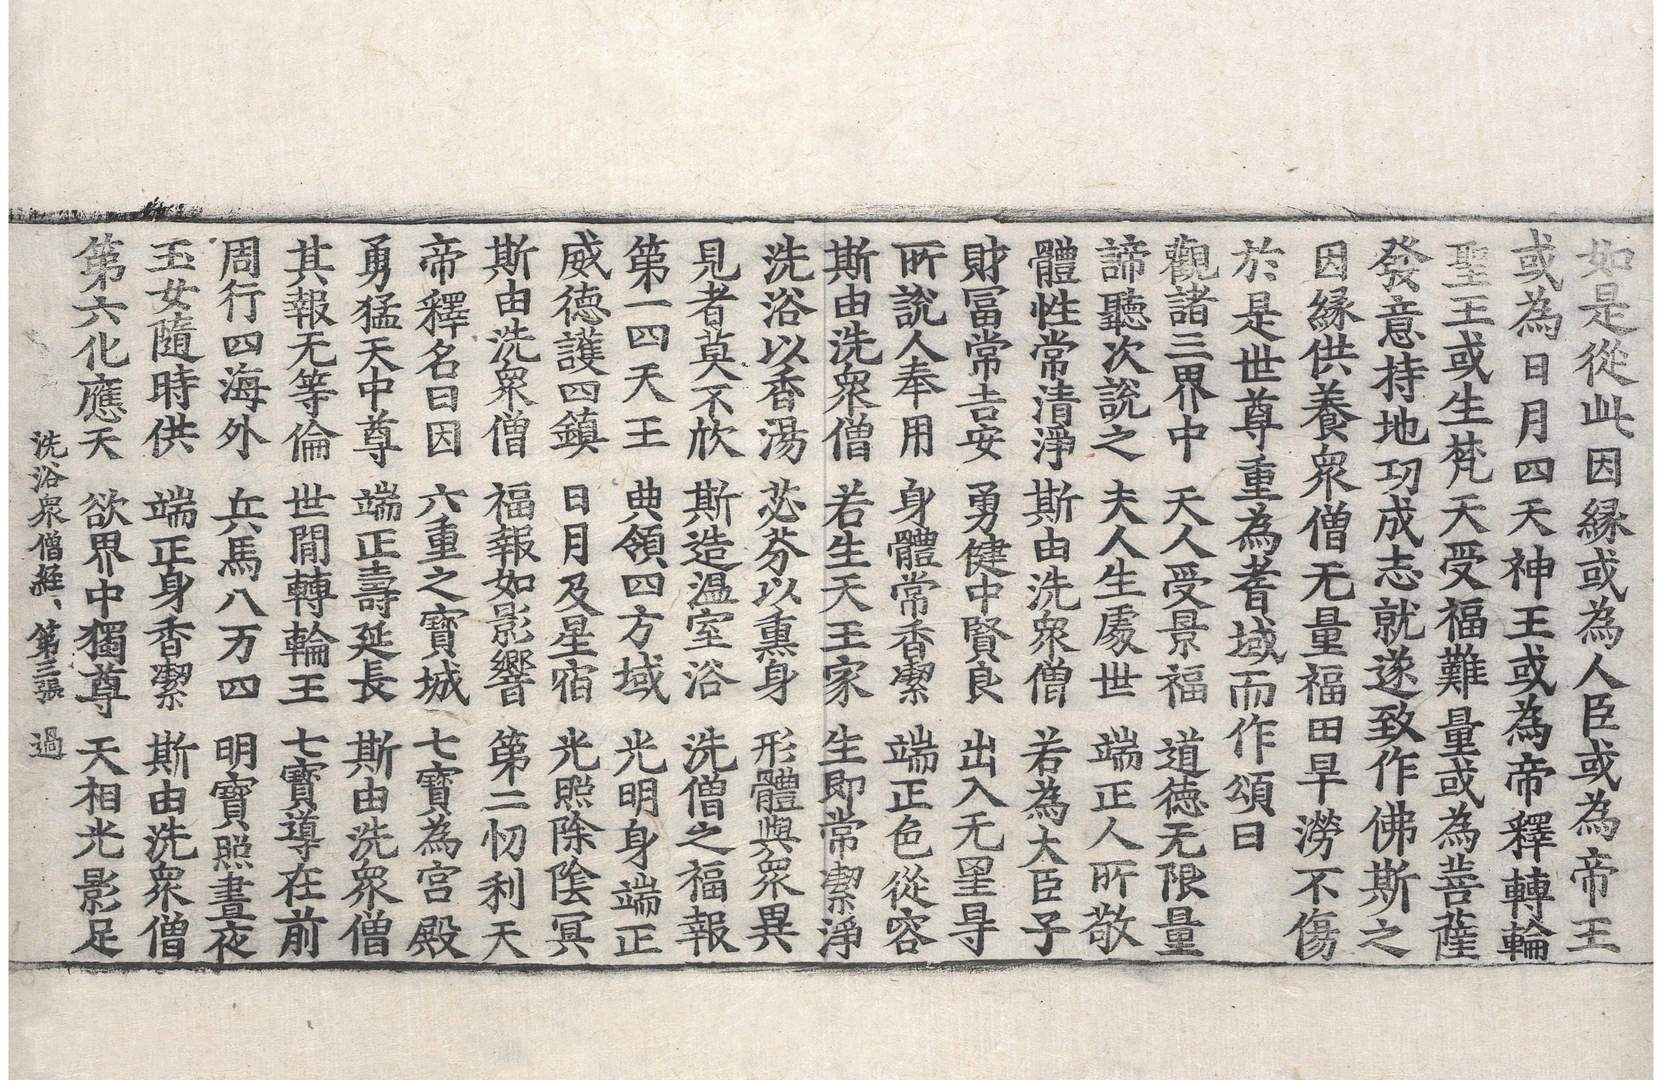 如是從此因緣或為人臣或為帝王
或為日月四天神王或為帝釋轉輪
聖王或生梵天受福難量或為菩薩
發意持地功成志就遂致作佛斯之
因緣供養衆僧无量福田旱澇不傷
於是世尊重為耆域而作頌曰
觀諸三界中　天人受景福　道德无限量
諦聽次說之　夫人生處世　端正人所敬
體性常清淨　斯由洗衆僧　若為大臣子
財富常吉安　勇健中賢良　出入无罣㝵
所說人奉用　身體常香潔　端正色從容
斯由洗衆僧　若生天王家　生即常潔淨
洗浴以香湯　苾芬以熏身　形體與衆異
見者莫不欣　斯造温室浴　洗僧之福報
第一四天王　典領四方域　光明身端正
威德護四鎮　日月及星宿　光照除陰冥
斯由洗衆僧　福報如影響　第二忉利天
帝釋名曰因　六重之寶城　七寶為宮殿
勇猛天中尊　端正壽延長　斯由洗衆僧
其報无等倫　世間轉輪王　七寶導在前
周行四海外　兵馬八万四　明寶照晝夜
玉女隨時供　端正身香潔　斯由洗衆僧
第六化應天　欲界中獨尊　天相光影足
洗浴衆僧經、第三張　過